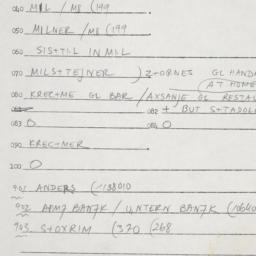 040 MIL / M8 (199
050 MILNER / M8 (199
060 SISTIL IN MIL
070 MILSTEJNER ) 2 ORNES GL HAND
(AT HOME
080 KRECME GL BAR / AXSANJE GL RESTA
082 + BUT STADOL
083 O 084 O
090 KRECMER
100 O
901 ANDERS (-138010
902 ARM7 BAN7K / INTERN BAN7K (10640
903 STOXRIM (370 (268